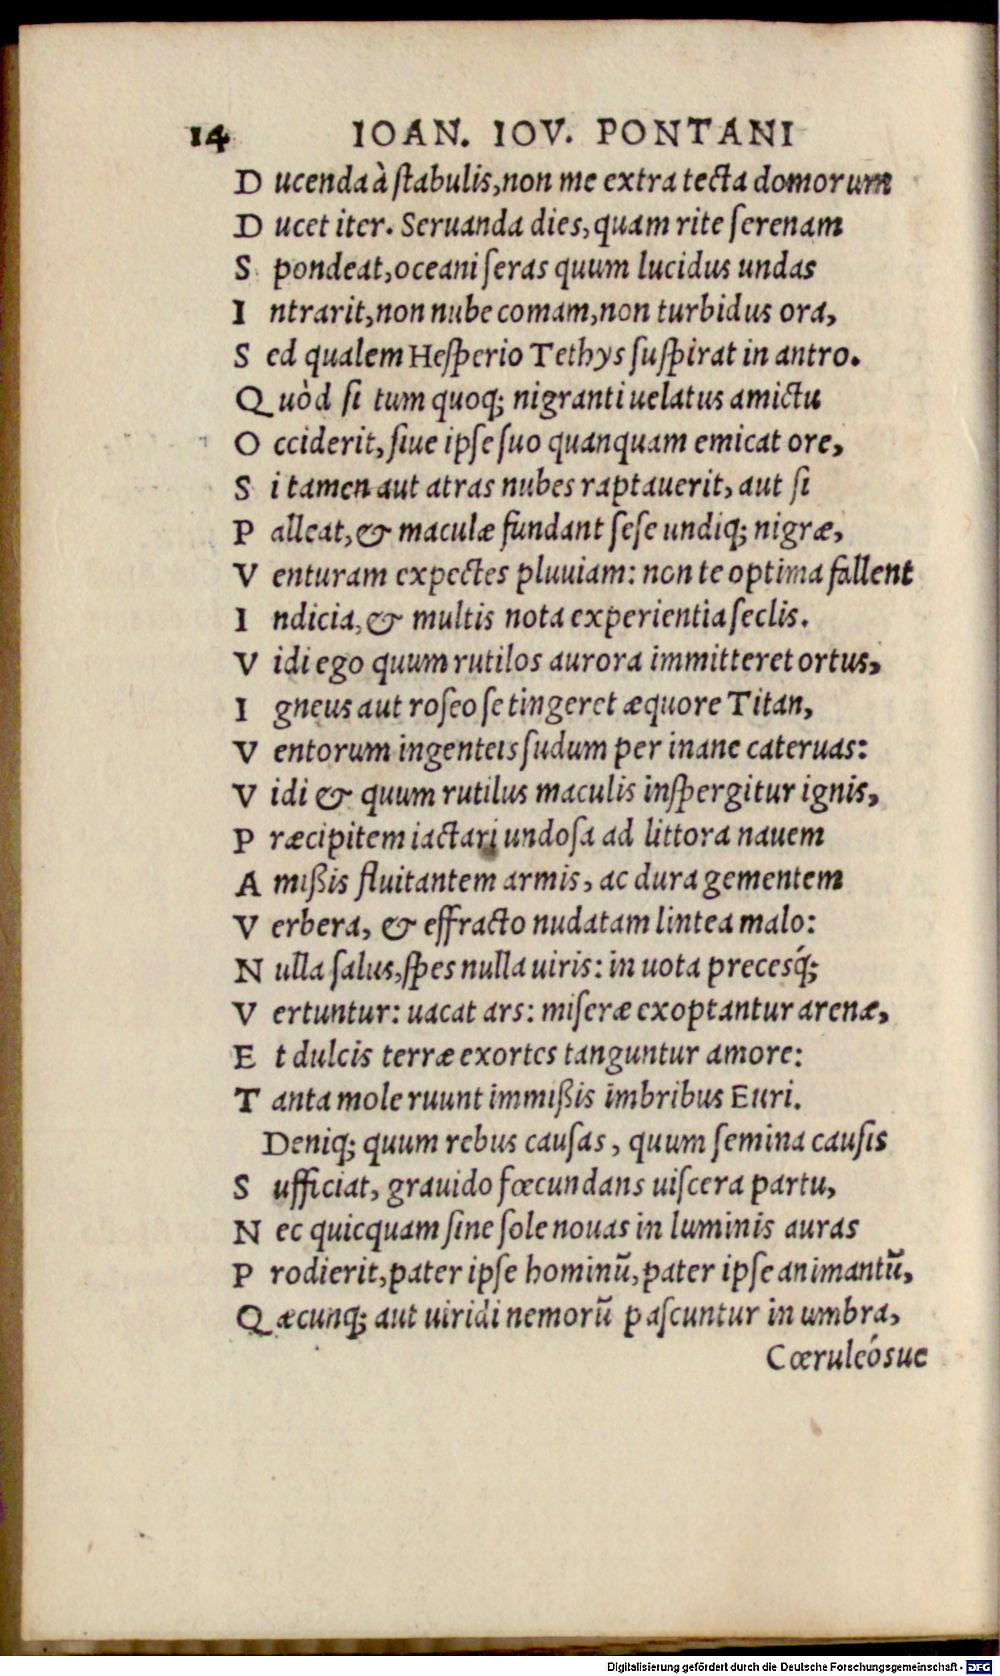 14 IOAN. IOV. PONTANI
Ducenda à ſtabulis, non me extra tecta domorum
Ducet iter. Seruanda dies, quam rite ſerenam
Spondeat, oceani ſeras quum lucidus undas
Intrarit, non nube comam, non turbidus ora,
Sed qualem Heſperio Tethys ſuſpirat in antro.
Quòd ſi tum quoq; nigranti uelatus amictu
Occiderit, ſiue ipſe ſuo quanquam emicat ore,
Si tamen aut atras nubes raptauerit, aut ſi
Palleat, & maculæ fundant ſeſe undiq; nigræ,
Venturam expectes pluuiam: non te optima fallent
Indicia, & multis nota experientia ſeclis.
Vidi ego quum rutilos aurora immitteret ortus,
Igneus aut roſeo ſe tingeret æquore Titan,
Ventorum ingenteis ſudum per inane cateruas:
Vidi & quum rutilus maculis inſpergitur ignis,
Præcipitem iactari undoſa ad littora nauem
Amißis fluitantem armis, ac dura gementem
Verbera, & effracto nudatam lintea malo:
Nulla ſalus, ſpes nulla uiris: in uota precesq́;
Vertuntur: uacat ars: miſeræ exoptantur arenæ,
Et dulcis terræ exortes tanguntur amore:
Tanta mole ruunt immißis imbribus Euri.
Deniq; quum rebus cauſas, quum ſemina cauſis
Sufficiat, grauido fœcundans uiſcera partu,
Nec quicquam ſine ſole nouas in luminis auras
Prodierit, pater ipſe hominū, pater ipſe animantū,
Qæcunq; aut uiridi nemorū paſcuntur in umbra,
Cœruleósue
Digitalisierung gefördert durch die Deutsche Forschungsgemeinschaft - DFG